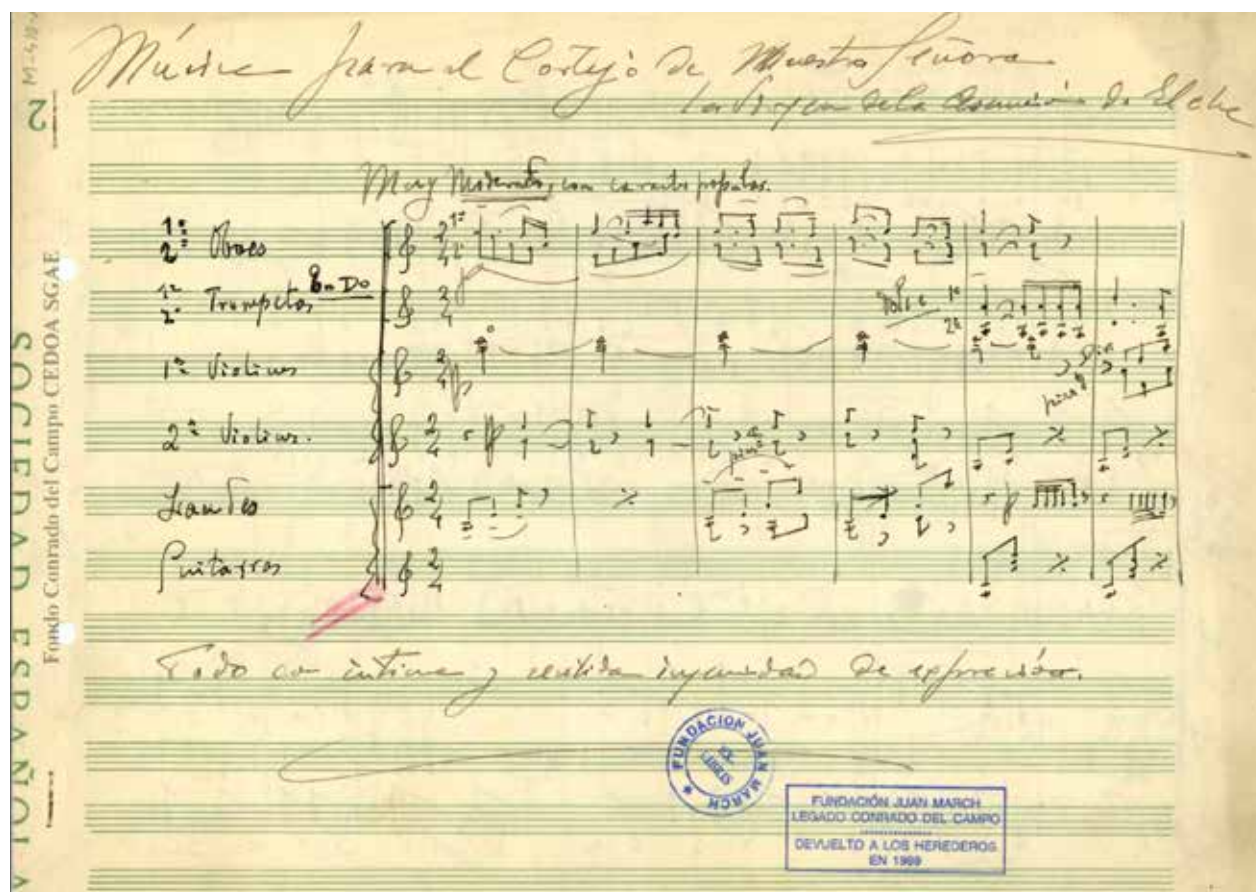 Música para el Cortejo de Nuestra Señora
la Virgen de la Asunción de Elche
Muy Moderato, con caracter popular.
1º
2º Oboes
1º
2º Trompetas En Do
1º Violines
2º Violines.
Guitarras
Todo con intima y sentida ingenuidad de expresión.
2
SOCIEDAD ESPAÑOLA
Fondo Conrado del Campo CEDOA SGAE
FUNDACION JUAN MARCH
EX LIBRIS
FUNDACIÓN JUAN MARCH
LEGADO CONRADO DEL CAMPO
DEVUELTO A LOS HEREDEROS
EN 1989